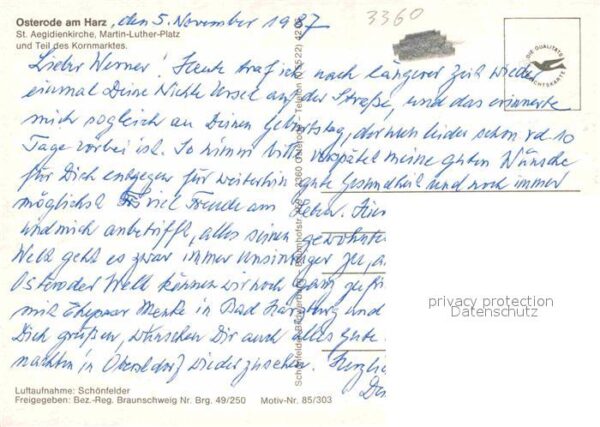 Osterode am Harz, den 5. November 1987
3360
St. Aegidienkirche, Martin-Luther-Platz
und Teil des Kornmarktes.
DIE QUALITÄTS
Lieber Werner! Heute traf ich nach längerer Zeit wieder
einmal Deine Nichte Ursel auf der Straße, und das erinnerte
mich sogleich an Deinen Geburtstag, der nun leider schon rd. 10
Tage vorbei ist. So nimm bitte verspätet meine guten Wünsche
für Dich entgegen für weiterhin gute Gesundheit und noch immer
möglichst viel Freude am Leben. Für
und mich anbetrifft, alles seinen gewohnten
Welt geht es zwar immer unsinniger zu, a
Osteroder Welt können wir noch ganz zufri
mit Ehepaar Menke in Bad Harzburg und
Dich grüßen, wünschen Dir auch alles Gute
nachten in Oberstdorf wiederzusehen. Herzlich
De
privacy protection
Datenschutz
Luftaufnahme: Schönfelder
Freigegeben: Bez.-Reg. Braunschweig Nr. Brg. 49/250 Motiv-Nr. 85/303